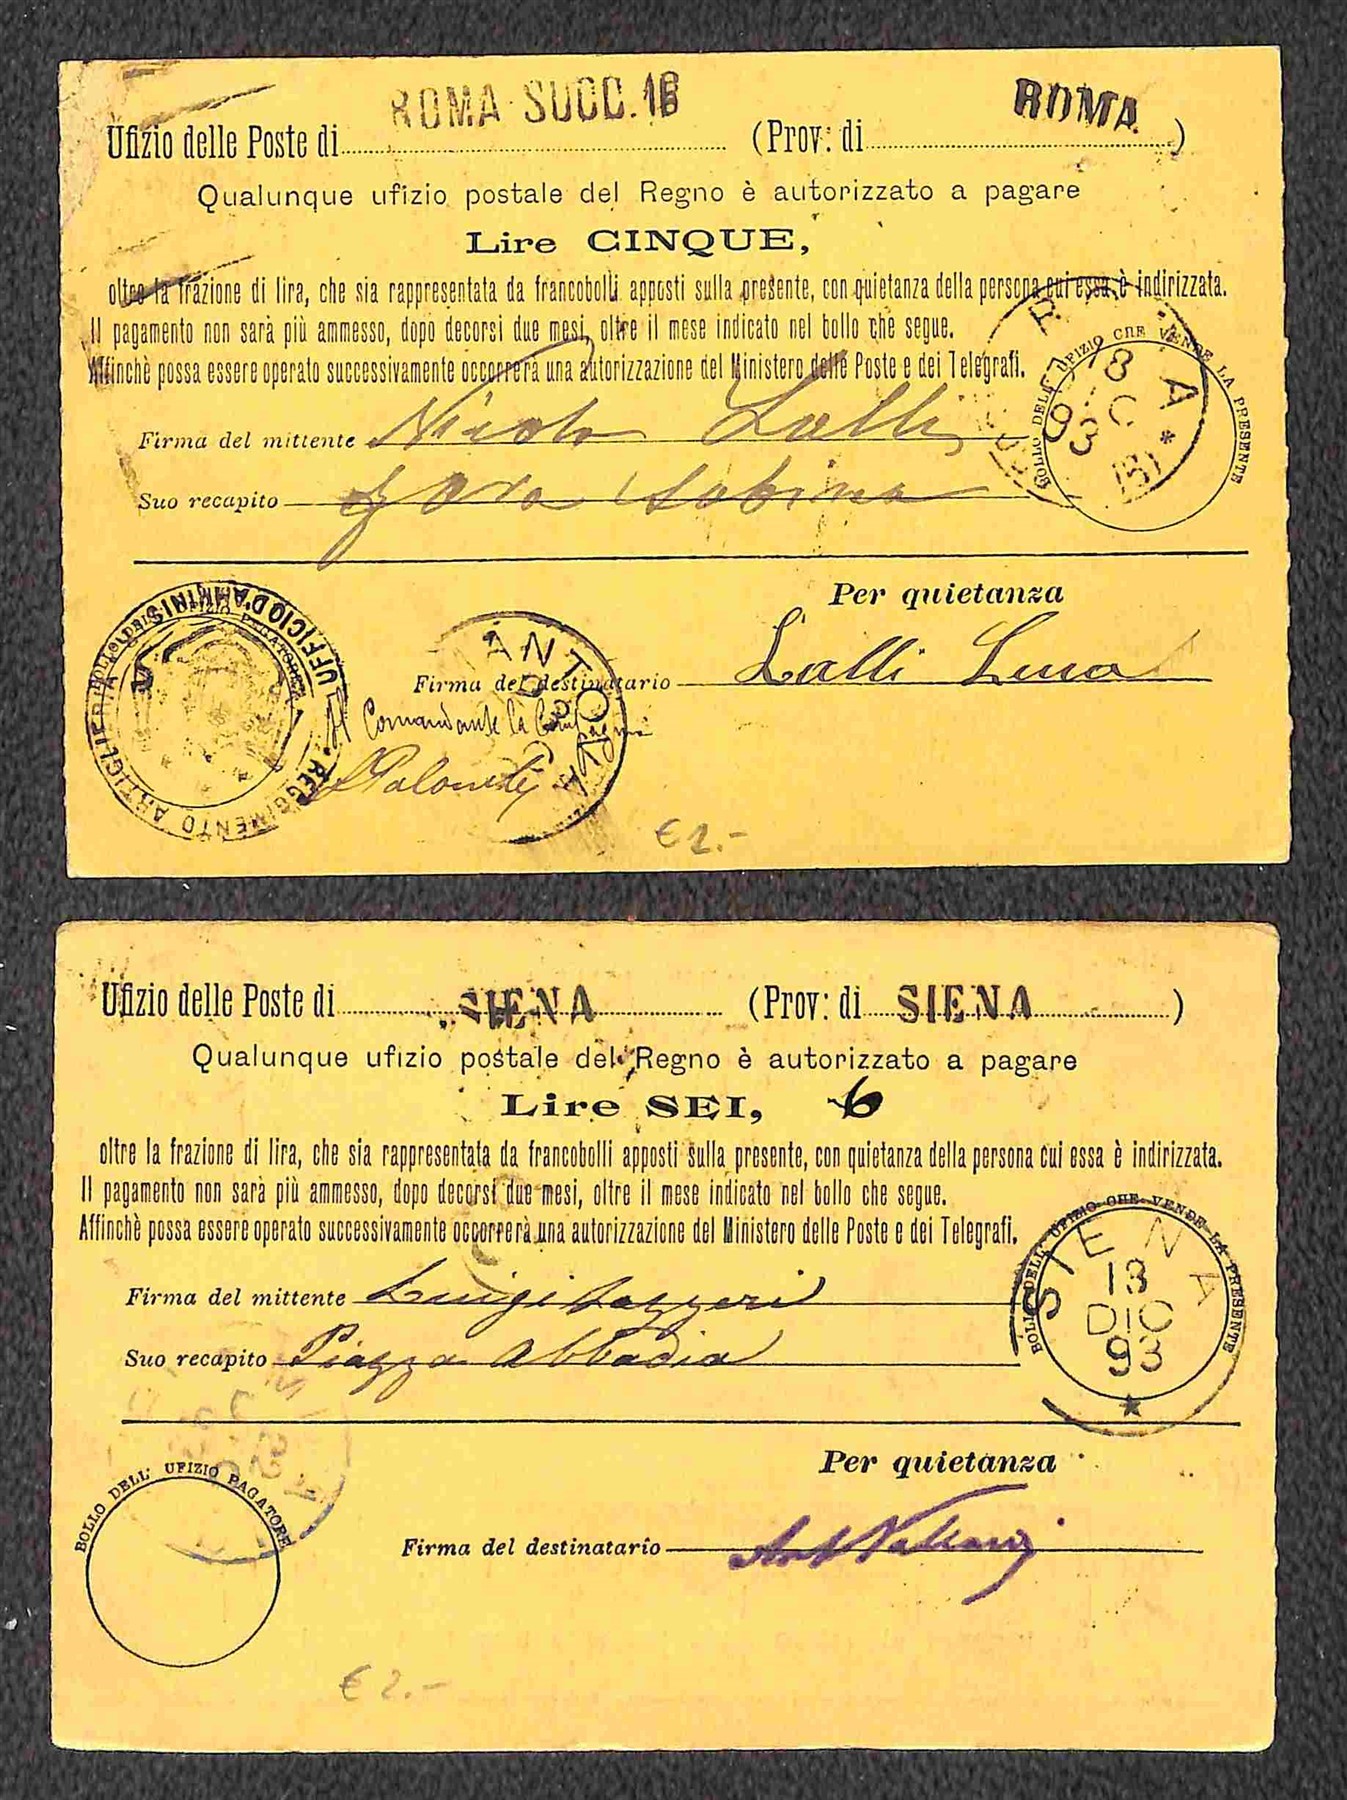 ROMA SUCC. 16 ROMA
Ufizio delle Poste di (Prov: di )
Qualunque ufizio postale del Regno è autorizzato a pagare
Lire CINQUE,
oltre la frazione di lira, che sia rappresentata da francobolli apposti sulla presente, con quietanza della persona cui essa è indirizzata.
Il pagamento non sarà più ammesso, dopo decorsi due mesi, oltre il mese indicato nel bollo che segue.
Affinchè possa essere operato successivamente occorrerà una autorizzazione del Ministero delle Poste e dei Telegrafi.
BOLLO DELL' UFIZIO CHE VENDE LA PRESENTE
93
Firma del mittente Lalli
Suo recapito Sabina
Per quietanza
Firma del destinatario Lalli Luca
MANTOVA
REGGIMENTO ARTIGLIERIA
UFFICIO D'AMMINIS
Il Comandante la
€ 2.-
Ufizio delle Poste di SIENA (Prov: di SIENA )
Qualunque ufizio postale del Regno è autorizzato a pagare
Lire SEI, 6
oltre la frazione di lira, che sia rappresentata da francobolli apposti sulla presente, con quietanza della persona cui essa è indirizzata.
Il pagamento non sarà più ammesso, dopo decorsi due mesi, oltre il mese indicato nel bollo che segue.
Affinchè possa essere operato successivamente occorrerà una autorizzazione del Ministero delle Poste e dei Telegrafi.
BOLLO DELL' UFIZIO CHE VENDE LA PRESENTE
SIENA
13
DIC
93
Firma del mittente Luigi Lazzeri
Suo recapito Piazza Abbadia
Per quietanza
BOLLO DELL' UFIZIO PAGATORE
Firma del destinatario
€ 2.-